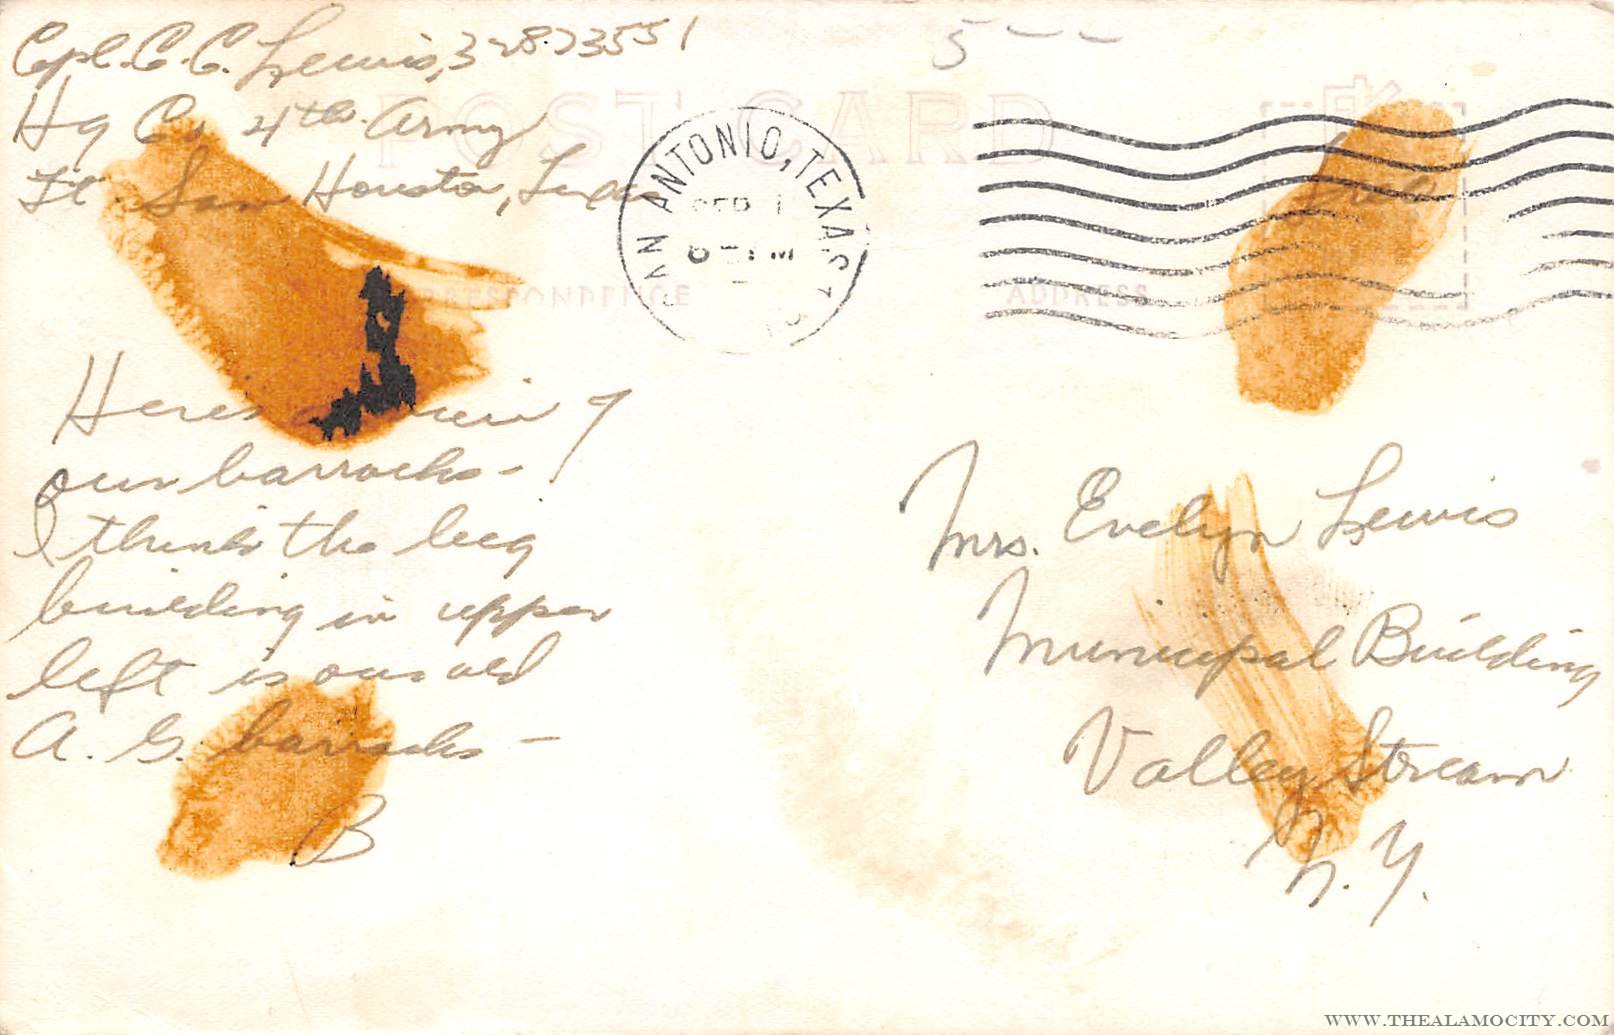 Cpl. C. C. Lewis, 32873551
Hq Co 4th Army
Ft. Sam Houston, Texas
5 - -
POST CARD
SAN ANTONIO, TEXAS
SEP 1
6 - PM
Free
CORRESPONDENCE
ADDRESS
Heres a view of
our barrocks -
I think the big
building in upper
left is our old
A. G. barracks -
B
Mrs. Evelyn Lewis
Municipal Building
Valley Stream
N. Y.
WWW.THEALAMOCITY.COM